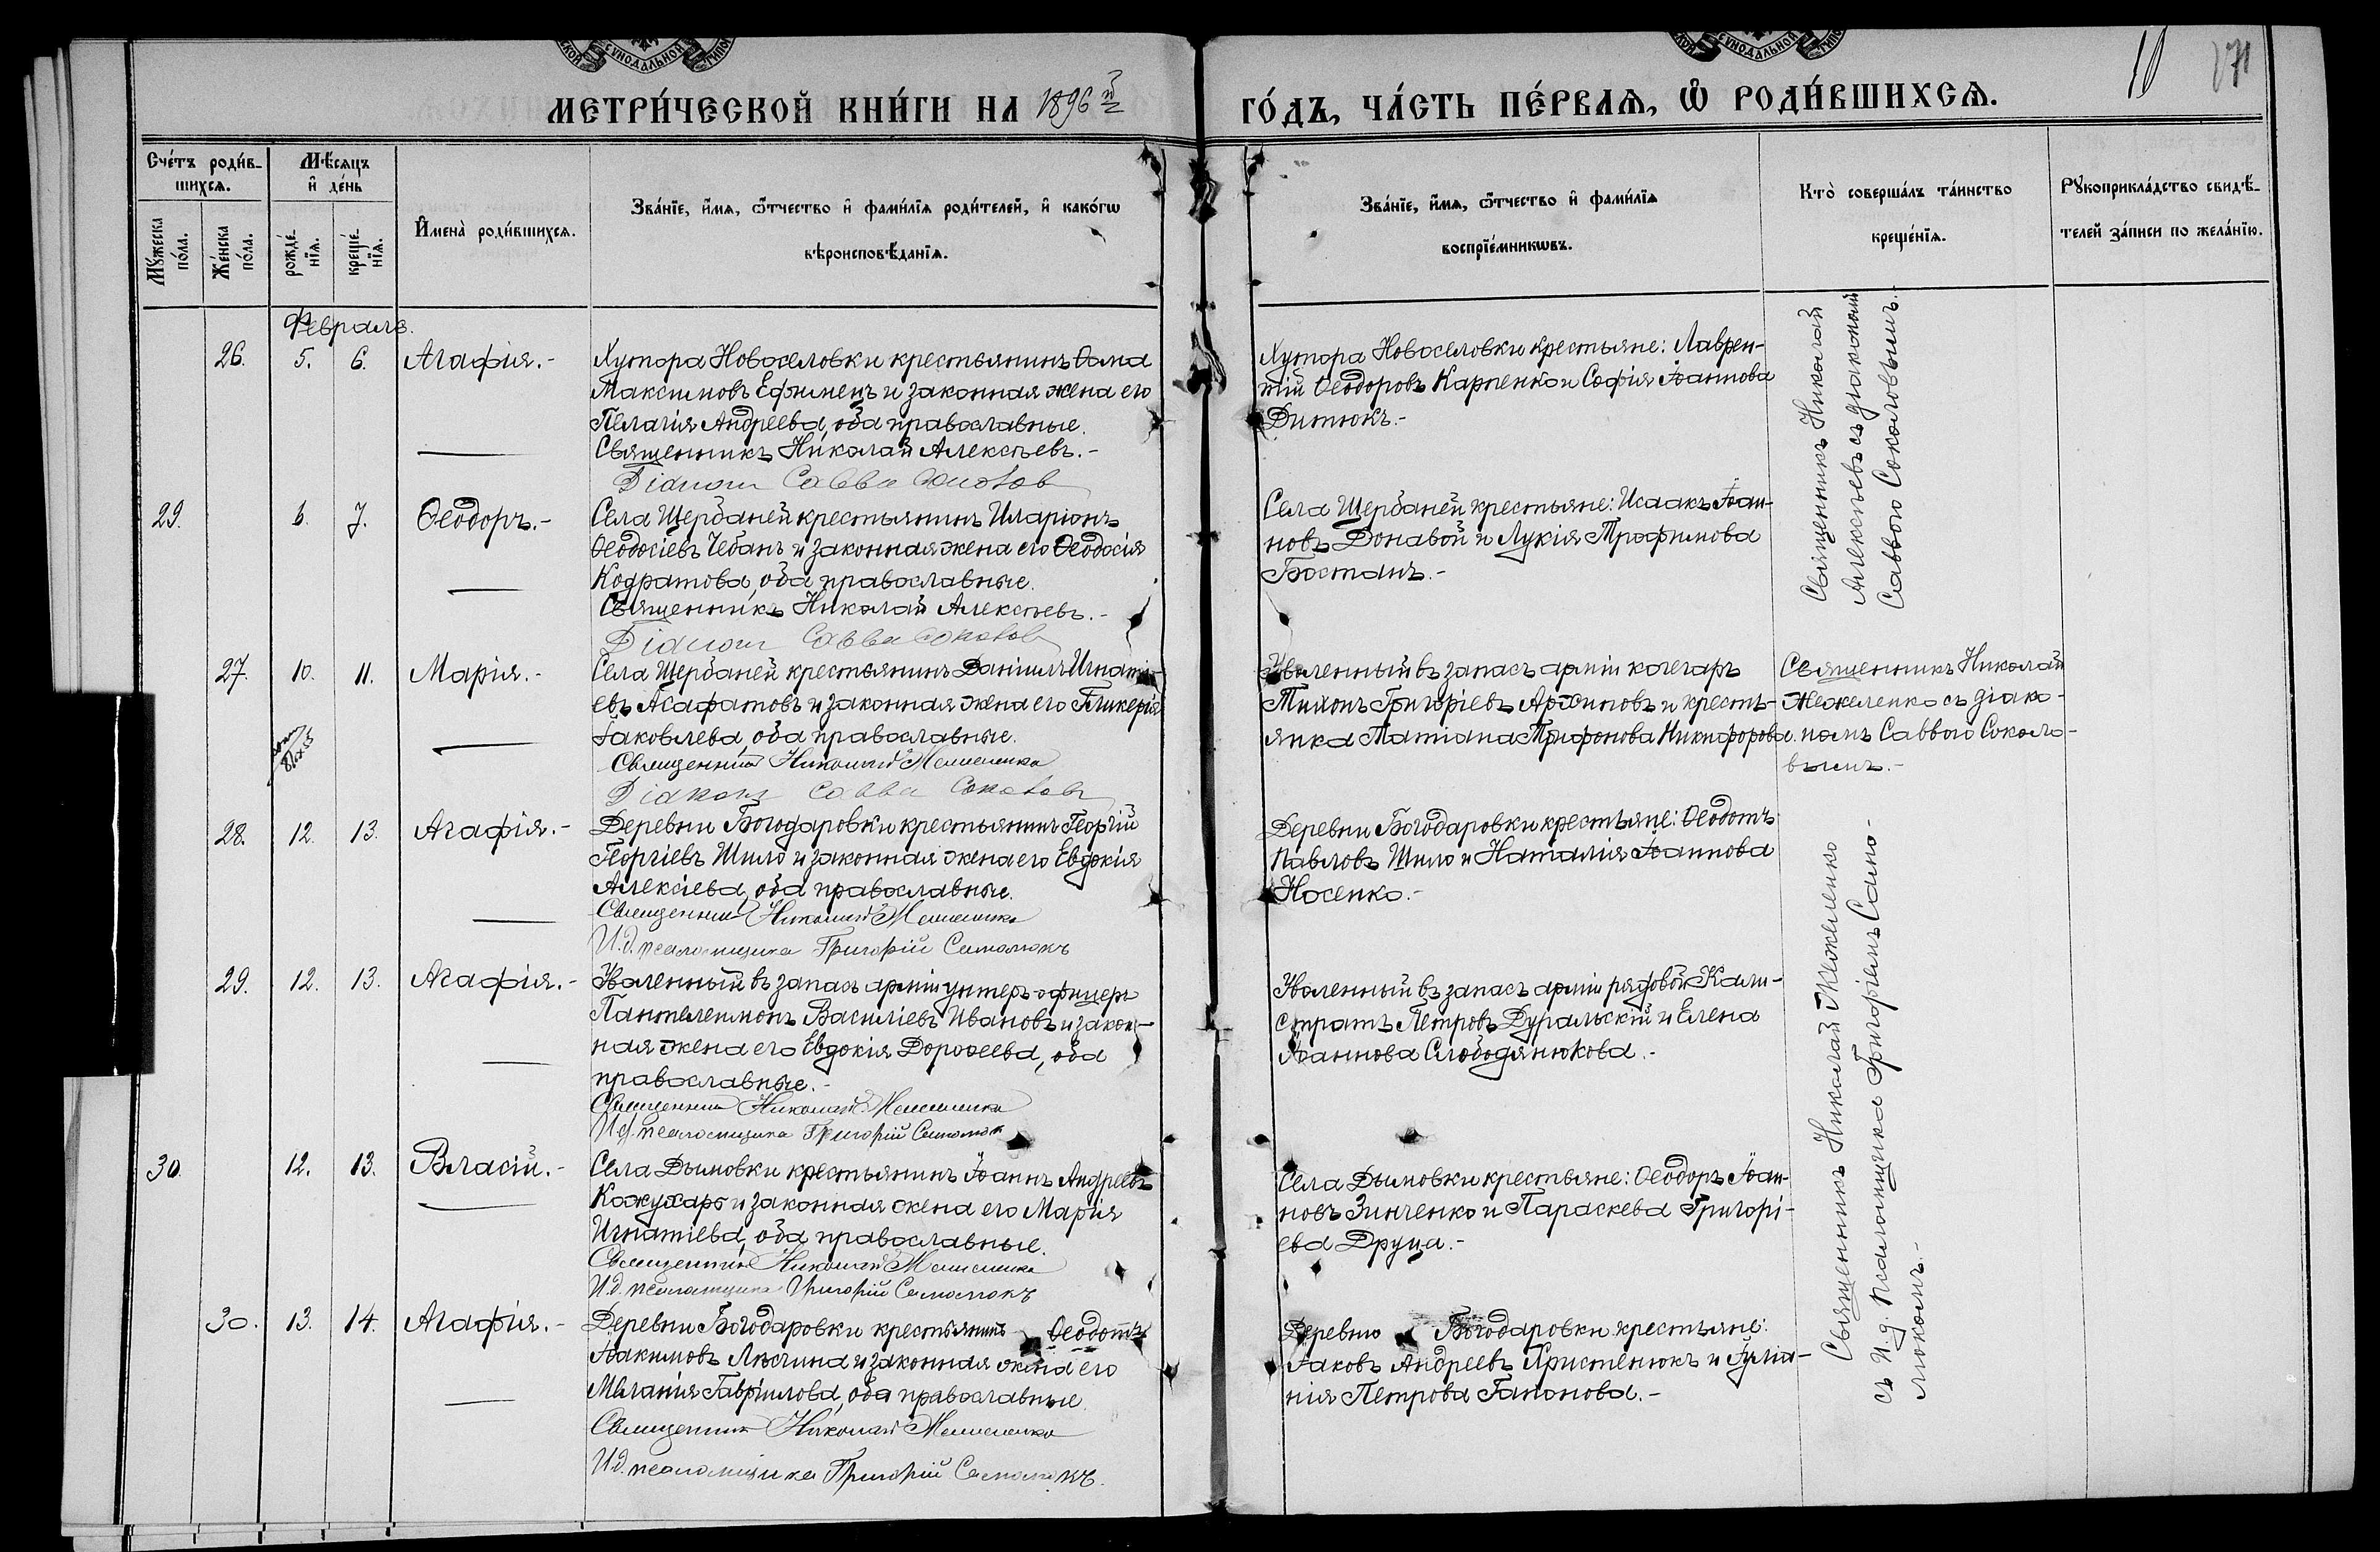 СѴНОДАЛЬНОЙ
СѴНОДАЛЬНОЙ
МЕТРИ́ЧЕСКОЙ КНИ́ГИ НА 1896 й
ГО́ДЪ, ЧА́СТЬ ПЕ́РВАѦ, Ѡ РОДИ́ВШИХСѦ.
10
171
Сче́тъ роди́в-
шихсѧ.
Мѣ́сѧцъ
и҆ де́нь
Мꙋ́жеска по́ла.
Же́нска по́ла.
рожде́-
нїѧ.
креще́-
нїѧ.
И҆мена̀ роди́вшихсѧ.
Зва́нїе, и҆́мѧ, ѿтчество и҆ фами́лїѧ роди́телей, и҆ како́гѡ
вѣроисповѣ́данїѧ.
Зва́нїе, и҆́мѧ, ѿтчество и҆ фами́лїѧ
воспрїе́мникѡвъ.
Кто̀ соверша́лъ та́инство
креще́нїѧ.
Рꙋкоприкла́дство свидѣ́-
телей за́писи по жела́нїю.
Февраль.
26. 5. 6. Агафія.-
Хутора Новоселовки крестьянинъ Ѳома
Максимовъ Ефименъ и законная жена его
Пелагія Андреева, оба православные.
Священникъ Николай Алексѣевъ.-
Діаконъ Савва Соколов
Хутора Новоселовки крестьяне: Лаврен-
тій Ѳеодоровъ Карпенко и Софія Іоаннова
Дитюкъ.-
Священникъ Николай
Алексѣевъ съ діакономъ
Саввою Соколовымъ.-
29. 6. 7. Ѳеодоръ.-
Села Щербаней крестьянинъ Иларіонъ
Ѳеодосіевъ Чебанъ и законная жена его Ѳеодосія
Кодратова, оба православные.
Священникъ Николай Алексѣевъ.-
Діаконъ Савва Соколов
Села Щербаней крестьяне: Исаакъ Іоан-
новъ Донавой и Лукія Трофимова
Бостанъ.-
27. 10. 11. Марія.-
Села Щербаней крестьянинъ Даніилъ Игнаті-
евъ Асафатовъ и законная жена его Гликерія
Іаковлева, оба православные.
Священникъ Николай Межеленко
Діаконъ Савва Соколовъ
Уволенный въ запасъ арміи кочегаръ
Тихонъ Григоріевъ Архиповъ и кресть-
янка Татіана Трифонова Никифорова.
Священникъ Николай
Межеленко съ діако-
номъ Саввою Соколо-
вымъ.-
28. 12. 13. Агафія.-
Деревни Богодаровки крестьянинъ Георгій
Георгіевъ Шило и законная жена его Евдокія
Алексіева, оба православные.
Священникъ Николай Межеленко
И.д. псаломщика Григорій Самолюкъ
Деревни Богодаровки крестьяне: Ѳеодотъ
Павловъ Шило и Наталія Іоаннова
Носенко.-
Священникъ Николай Межеленко
съ И.д. псаломщика Григоріемъ Само-
люкомъ.-
29. 12. 13. Агафія.-
Уволенный въ запасъ арміи унтеръ-офицеръ
Пантелеимонъ Василіевъ Ивановъ и закон-
ная жена его Евдокія Дороѳеева, оба
православные.-
Священникъ Николай Межеленко
И.д. псаломщика Григорій Самолюк
Уволенный въ запасъ арміи рядовой Кали-
стратъ Петровъ Дуральскій и Елена
Іоаннова Слободянюкова.-
30. 12. 13. Власій.-
Села Дымовки крестьянинъ Іоаннъ Андреевъ
Кожухарь и законная жена его Марія
Игнатіева, оба православные.
Священникъ Николай Межеленко
И.д. псаломщика Григорій Самолюкъ
Села Дымовки крестьяне: Ѳеодоръ Іоан-
новъ Зинченко и Параскева Григорі-
ева Друца.-
30. 13. 14. Агафія.-
Деревни Богодаровки крестьянинъ Ѳеодотъ
Іоакимовъ Лысчина и законная жена его
Меланія Гавріилова, оба православные.
Священникъ Николай Межеленко
И.д. псаломщика Григорій Самолюкъ.
Деревни Богодаровки крестьяне:
Іаковъ Андреевъ Христенюкъ и Іуліа-
нія Петрова Гапонова.-